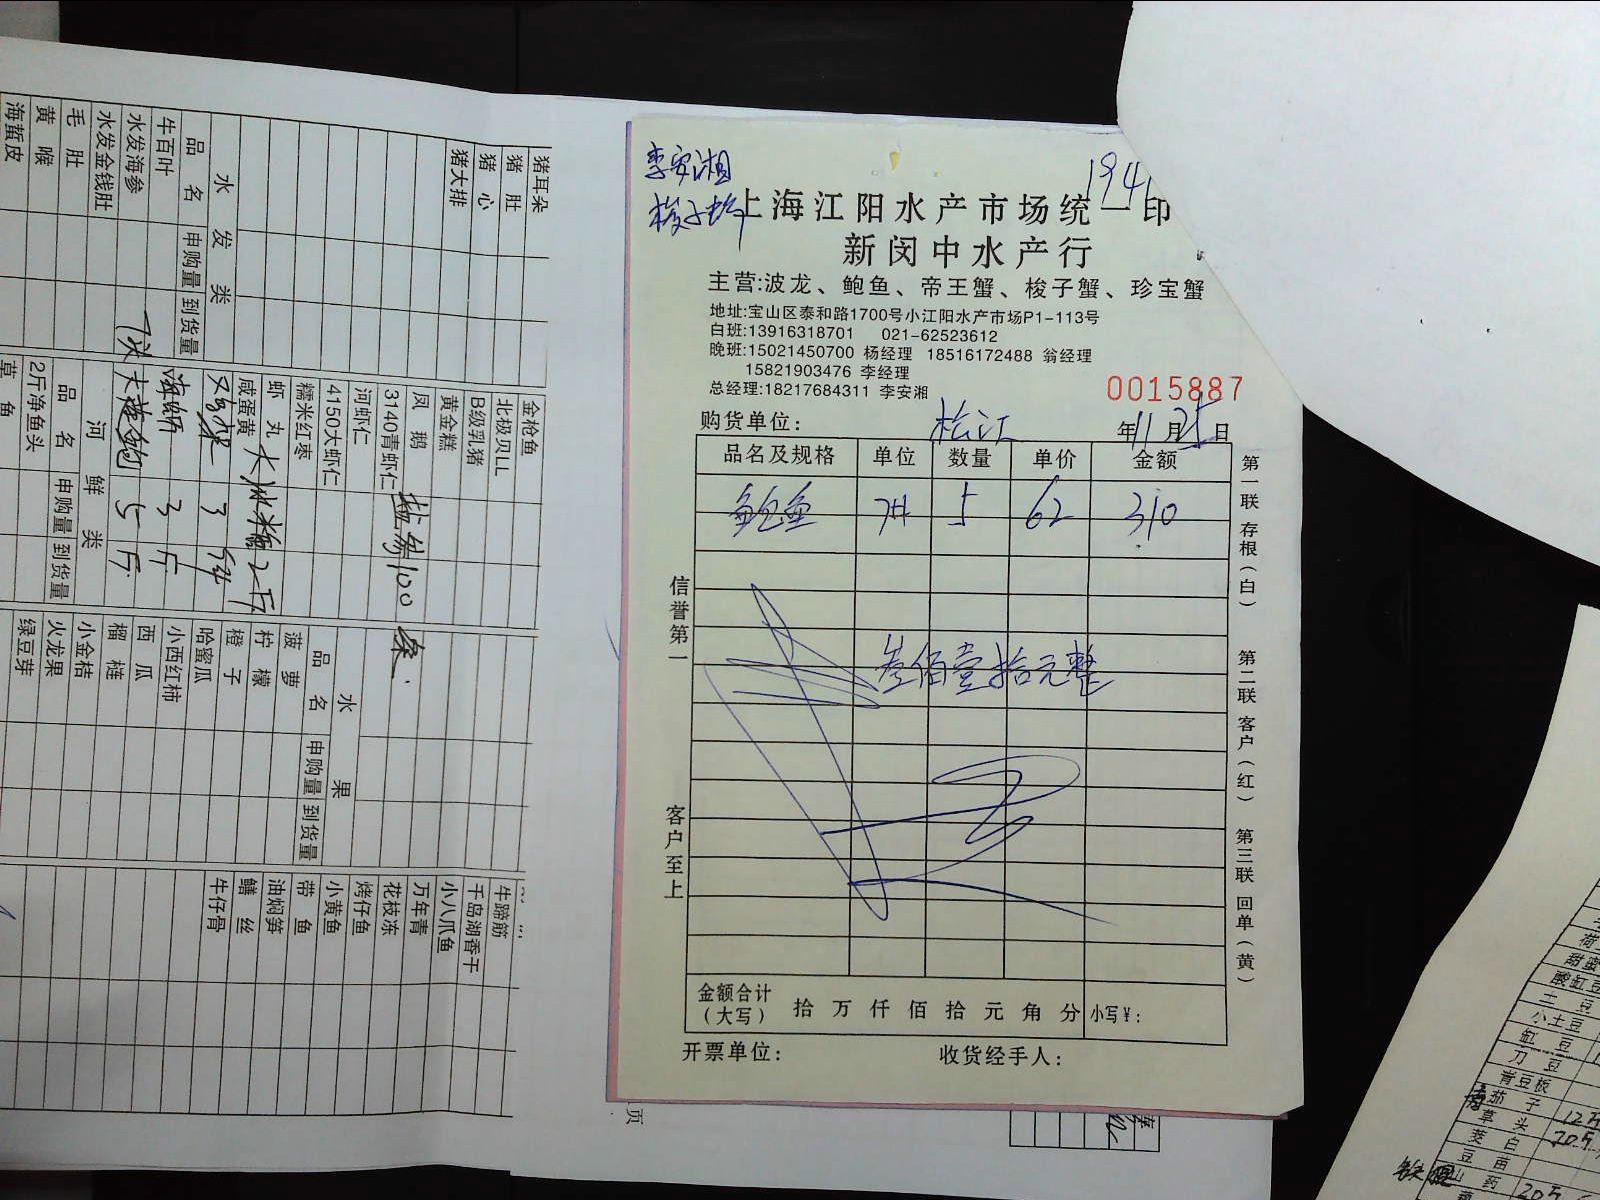 李安湘
梭子蟹
194
上海江阳水产市场统一印
新闵中水产行
主营:波龙、鲍鱼、帝王蟹、梭子蟹、珍宝蟹
地址:宝山区泰和路1700号小江阳水产市场P1-113号
白班:13916318701 021-62523612
晚班:15021450700 杨经理 18516172488 翁经理
15821903476 李经理
总经理:18217684311 李安湘
0015887
购货单位: 松江 年11月25日
品名及规格 单位 数量 单价 金额
鲍鱼 5 62 310
叁佰壹拾元整
金额合计(大写) 拾 万 仟 佰 拾 元 角 分 小写¥:
开票单位: 收货经手人:
信誉第一 客户至上
第一联 存根(白) 第二联 客户(红) 第三联 回单(黄)
猪耳朵
猪肚
猪心
猪大排
水发类
品名 申购量 到货量
牛百叶
水发海参
水发金钱肚
毛肚
黄喉
海蜇皮
金枪鱼
北极贝LL
B级乳猪
黄金糕
凤鹅
3140青虾仁
河虾仁
4150大虾仁
糯米红枣
虾丸
咸蛋黄
3
3斤
5斤
100条.
河鲜类
品名 申购量 到货量
2斤净鱼头
草鱼
水果
品名 申购量 到货量
菠萝
柠檬
橙子
哈蜜瓜
小西红柿
西瓜
榴梿
小金桔
火龙果
绿豆芽
牛蹄筋
千岛湖香干
小八爪鱼
万年青
花枝冻
烤仔鱼
小黄鱼
带鱼
油焖笋
鳝丝
牛仔骨
页
酸缸豆
土豆
小土豆
缸豆
刀豆
青豆板
茄子
草头 12斤
茭白 20斤
豆苗
山药 20斤